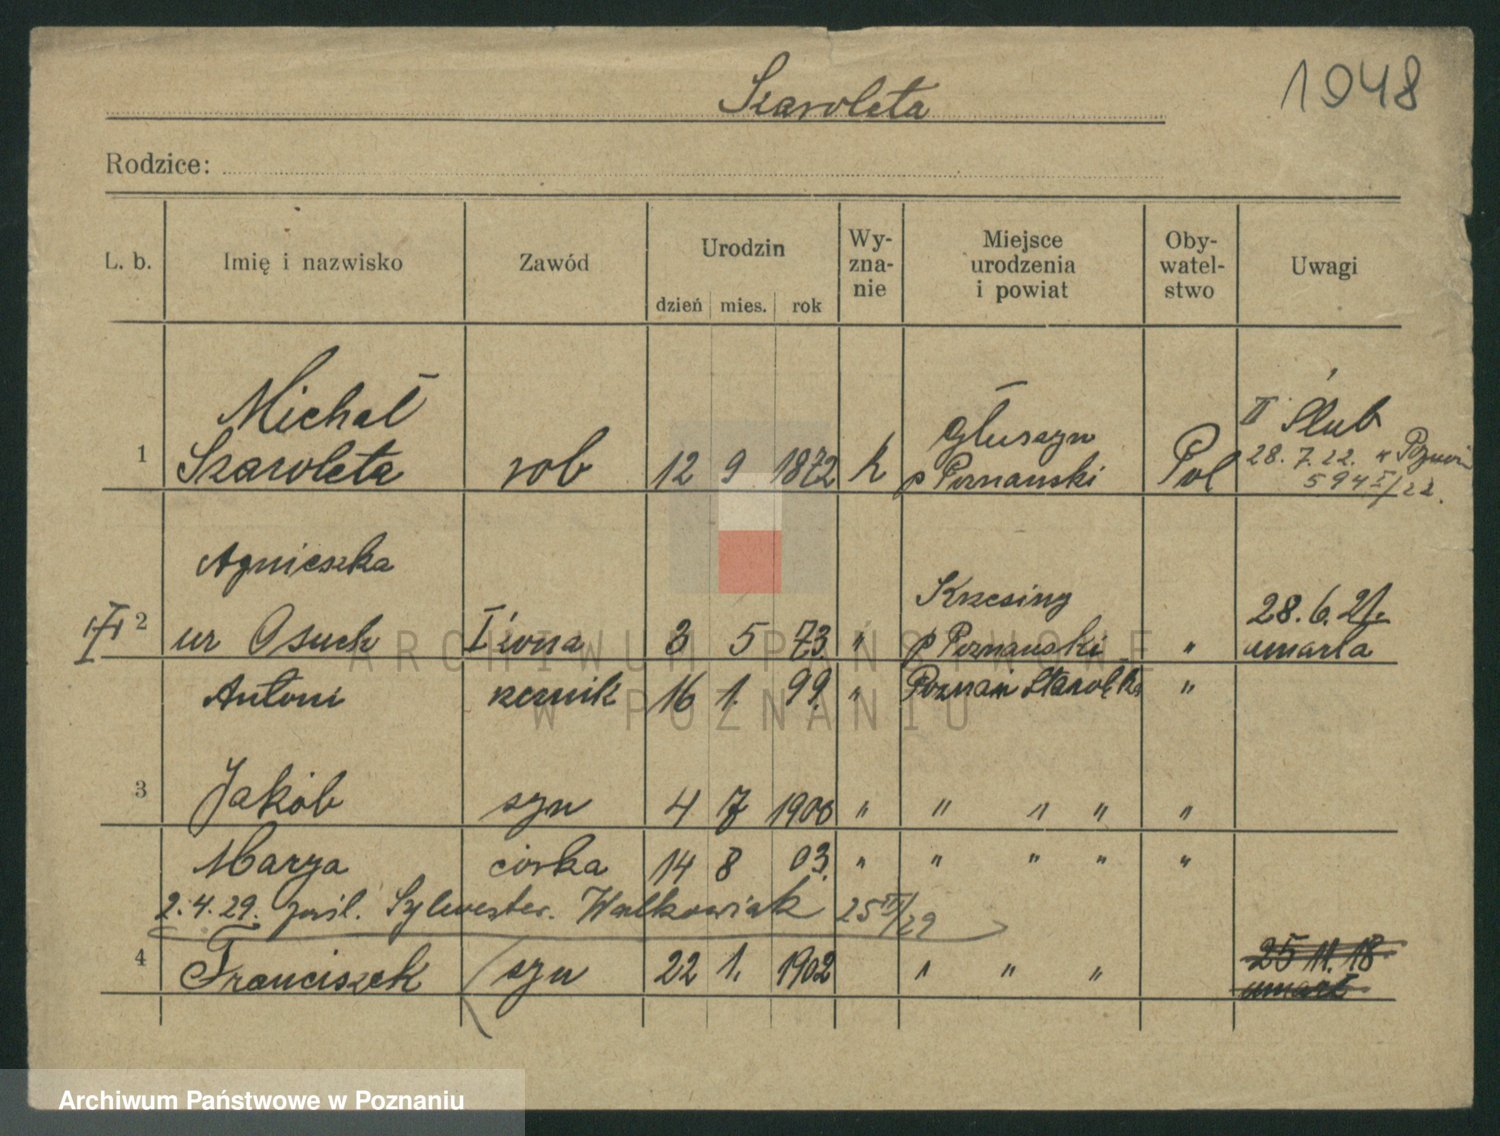 Szaroleta
1948
Rodzice:
L. b. Imię i nazwisko Zawód Urodzin dzień mies. rok Wy-zna-nie Miejsce urodzenia i powiat Oby-watel-stwo Uwagi
Michał
1 Szaroleta rob 12 9 1872 k Głuszyn p Poznański Pol II Ślub
28.7.22. w Poznań
594 I/22.
Agnieszka
2 ur Osuch I żona 3 5 73. " Krzesiny p Poznański " 28.6.21.
umarła
Antoni rzeźnik 16 1. 99. " Poznań Starołęka "
3 Jakób syn 4 7 1900 " " " " "
Marya córka 14 8 03. " " " " "
2.4.29. Sylwester Walkowiak 25 III/29
4 Franciszek syn 22 1. 1902 " " "
25 11. 18
umarł
ARCHIWUM PAŃSTWOWE
W POZNANIU
Archiwum Państwowe w Poznaniu